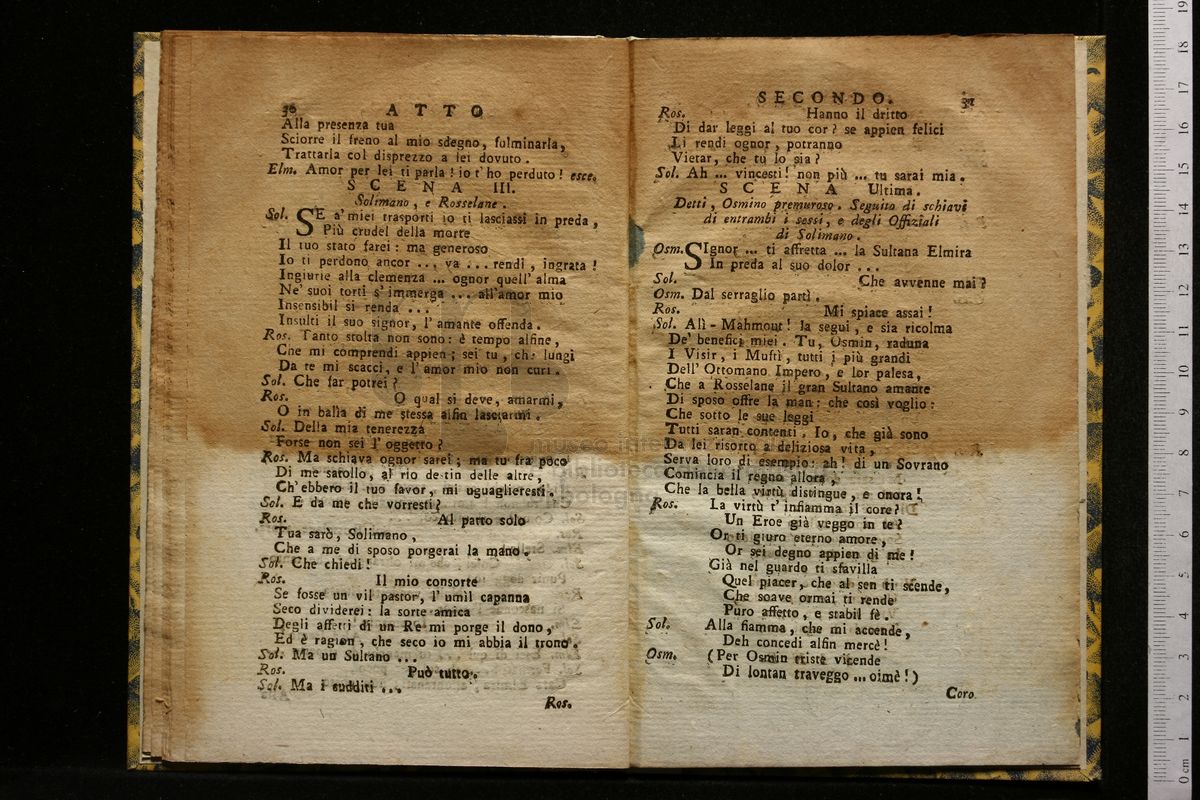 30 ATTO
Alla presenza tua
Sciorre il freno al mio sdegno, fulminarla,
Trattarla col disprezzo a lei dovuto.
Elm. Amor per lei ti parla! io t'ho perduto! esce.
SCENA III.
Solimano, e Rosselane.
Sol. SE a' miei trasporti io ti lasciassi in preda,
Più crudel della morte
Il tuo stato farei: ma generoso
Io ti perdono ancor ... va ... rendi, ingrata!
Ingiurie alla clemenza ... ognor quell' alma
Ne' suoi torti s' immerga ... all' amor mio
Insensibil si renda ...
Insulti il suo signor, l' amante offenda.
Ros. Tanto stolta non sono: è tempo alfine,
Che mi comprendi appien; sei tu, che lungi
Da te mi scacci, e l' amor mio non curi.
Sol. Che far potrei?
Ros. O qual si deve, amarmi,
O in balìa di me stessa alfin lasciarmi.
Sol. Della mia tenerezza
Forse non sei l' oggetto?
Ros. Ma schiava ognor sarei; ma tu fra poco
Di me satollo, al rio destin delle altre,
Ch' ebbero il tuo favor, mi uguaglieresti.
Sol. E da me che vorresti?
Ros. Al patto solo
Tua sarò, Solimano,
Che a me di sposo porgerai la mano.
Sol. Che chiedi!
Ros. Il mio consorte
Se fosse un vil pastor, l' umìl capanna
Seco dividerei: la sorte amica
Degli affetti di un Re mi porge il dono,
Ed è ragion, che seco io mi abbia il trono.
Sol. Ma un Sultano ...
Ros. Può tutto.
Sol. Ma i sudditi ...
Ros.
SECONDO. 31
Ros. Hanno il dritto
Di dar leggi al tuo cor? se appien felici
Li rendi ognor, potranno
Vietar, che tu lo sia?
Sol. Ah ... vincesti! non più ... tu sarai mia.
SCENA Ultima.
Detti, Osmino premuroso. Seguito di schiavi
di entrambi i sessi, e degli Offiziali
di Solimano.
Osm. SIgnor ... ti affretta ... la Sultana Elmira
In preda al suo dolor ...
Sol. Che avvenne mai?
Osm. Dal serraglio partì.
Ros. Mi spiace assai!
Sol. Alì-Mahmout! la segui, e sia ricolma
De' benefici miei. Tu, Osmin, raduna
I Visir, i Muftì, tutti i più grandi
Dell' Ottomano Impero, e lor palesa,
Che a Rosselane il gran Sultano amante
Di sposo offre la man: che così voglio:
Che sotto le sue leggi
Tutti saran contenti. Io, che già sono
Da lei risorto a deliziosa vita,
Serva loro di esempio: ah! di un Sovrano
Comincia il regno allora,
Che la bella virtù distingue, e onora!
Ros. La virtù t' infiamma il core?
Un Eroe già veggo in te?
Or ti giuro eterno amore,
Or sei degno appien di me!
Già nel guardo ti sfavilla
Quel piacer, che al sen ti scende,
Che soave ormai ti rende
Puro affetto, e stabil fè.
Sol. Alla fiamma, che mi accende,
Deh concedi alfin mercè!
Osm. (Per Osmin triste vicende
Di lontan traveggo ... oimè!)
Coro